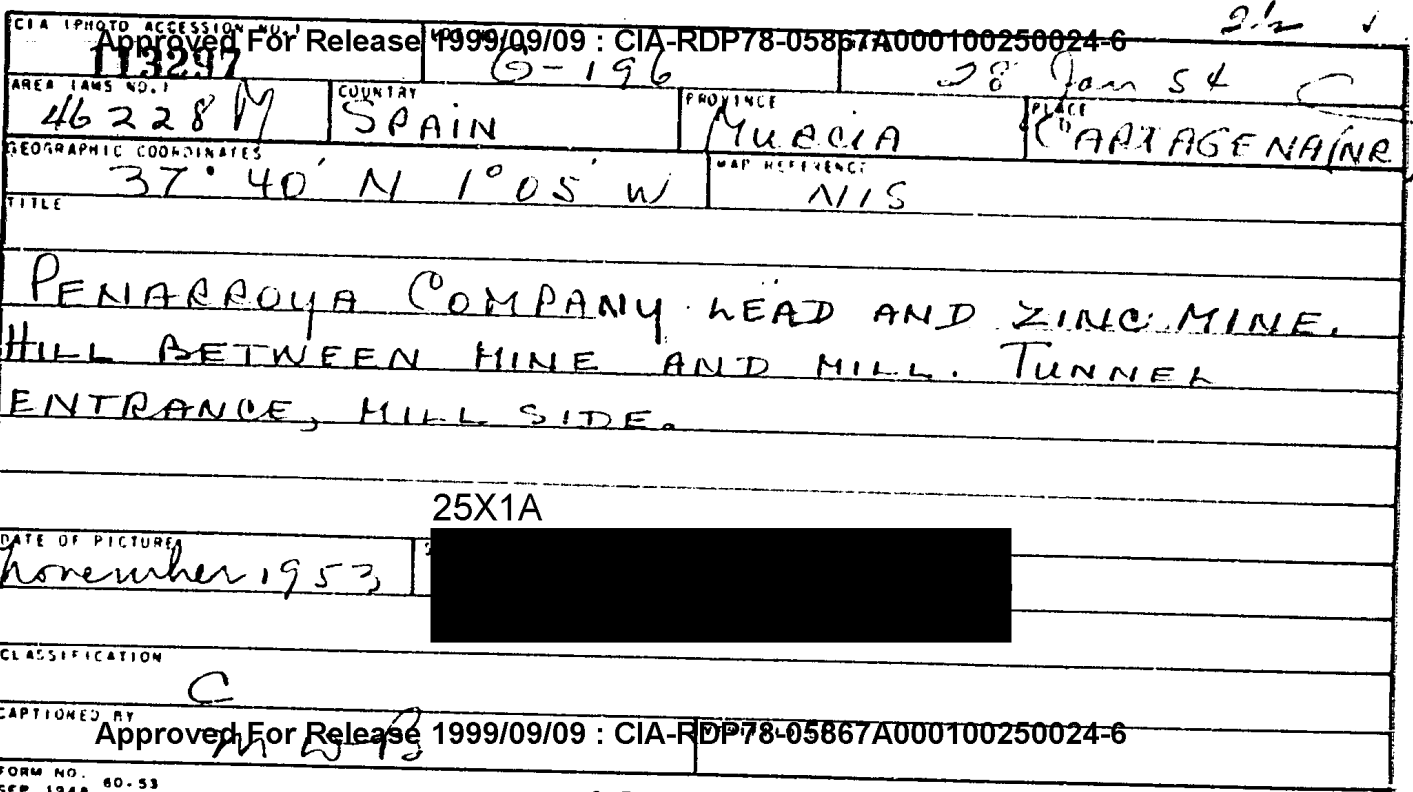 CIA (PHOTO ACCESSION NO.)
Approved For Release 1999/09/09 : CIA-RDP78-05867A000100250024-6
113297
G-196
28 Jan 54 C
AREA (AMS NO.)
46228 M
COUNTRY
SPAIN
PROVINCE
MURCIA
PLACE
CARTAGENA (NR
GEOGRAPHIC COORDINATES
37° 40' N 1° 05' W
MAP REFERENCE
NIS
TITLE
PENARROYA COMPANY LEAD AND ZINC MINE.
HILL BETWEEN MINE AND MILL. TUNNEL
ENTRANCE, MILL SIDE.
25X1A
DATE OF PICTURE
November 1953
CLASSIFICATION
C
CAPTIONED BY
Approved For Release 1999/09/09 : CIA-RDP78-05867A000100250024-6
FORM NO. 60-53
SEP 1948